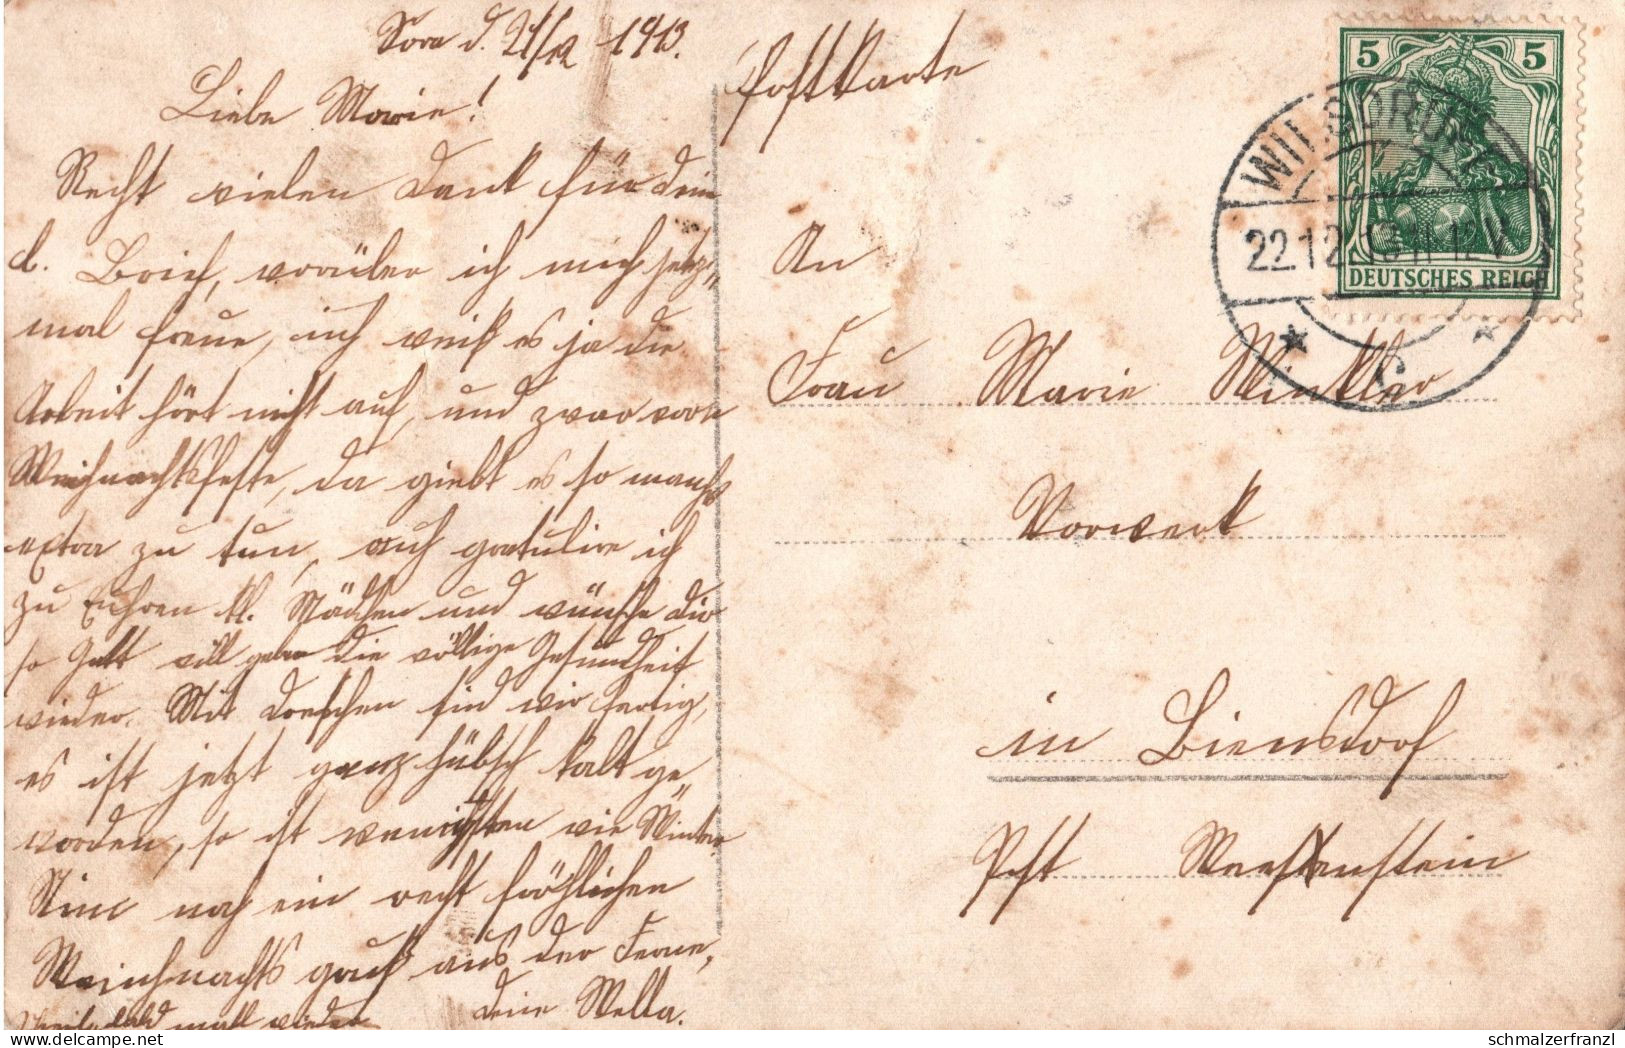 Sora d. 21/12 1913.
Liebe Marie!
Recht vielen Dank für dein
l. Brief, worüber ich mich jetz-
mal freue, ich weiß es ja die
Arbeit hört nicht auf, und zwar vorn
Weihnachtsfeste, da giebt es so manch
extra zu tun, auch gratulire ich
zu Euhren kl. Mädchen und wünsche dir
so Gott will gebe die völlige Gesundheit
wieder. Mit dreschen sind wir fertig,
es ist jetzt ganz hübsch kalt ge
worden, so ist wenigsten wie Winter.
Nun noch ein recht fröhlichen
Weinhnachts gruß aus der Ferne,
deine Mella.
bald mall wieder
Postkarte
An
Frau Marie Winkler
Vorwerk
in Biensdorf
Pst Weesenstein
5 5
DEUTSCHES REICH
WILSDRUFF
22.12.13 11-12 V
* c *
www.delcampe.net
schmalzerfranzl